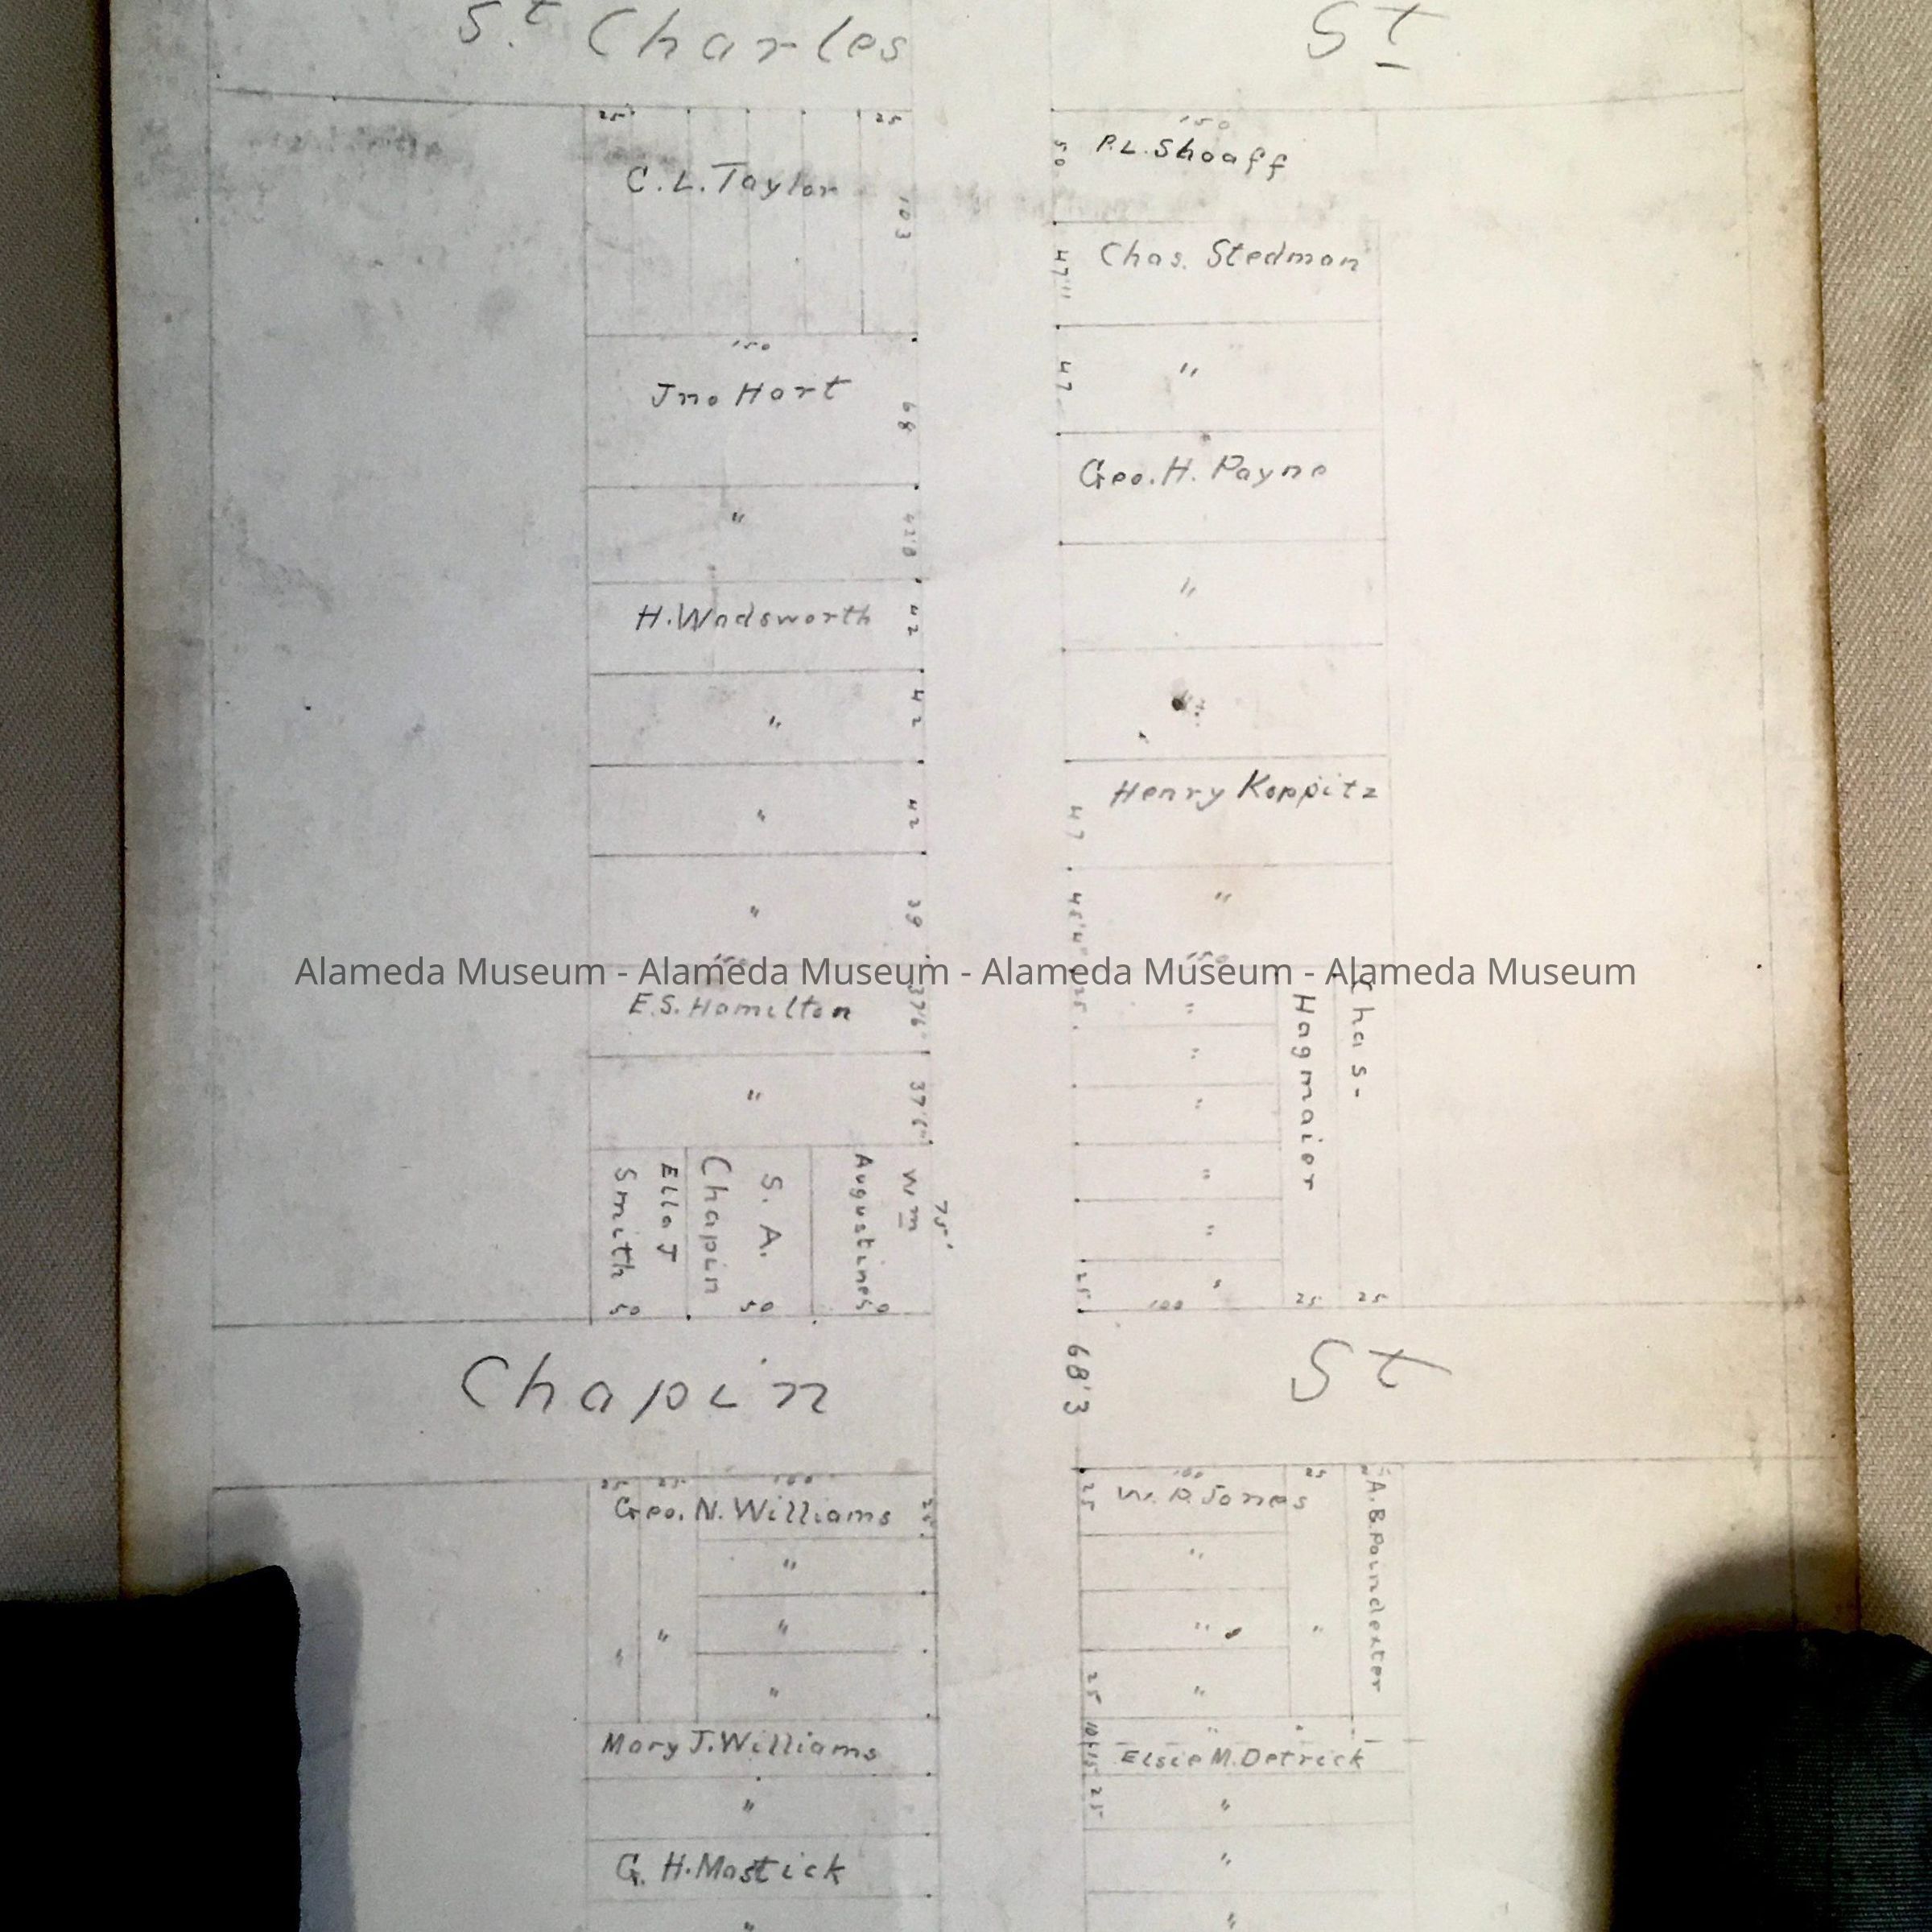 St Charles St
25 25
C.L. Taylor
103
150
Jno Hart
68
"
42'8
H. Wadsworth
42
"
42
"
42
"
39
150
E.S. Hamilton
37'6"
"
37'6"
Ella J
Smith 50
S. A.
Chapin
50
Wm
Augustine
50
75'
150
50
P.L. Shoaff
Chas. Stedman
47'11
"
47
Geo. H. Payne
"
"
Henry Koppitz
47
"
45'4"
150
25
"
"
"
"
"
"
25
100 25 25
Chas-
Hagmaier
Alameda Museum - Alameda Museum - Alameda Museum - Alameda Museum
Chapin St
68'3
25 25 100
Geo. N. Williams
25
"
"
"
"
"
Mary J. Williams
"
G. H. Mastick
"
100 25
25
W. P. Jones
"
"
"
"
25
A.B. Poindexter
"
10+15
Elsie M. Detrick
25
"
"
"